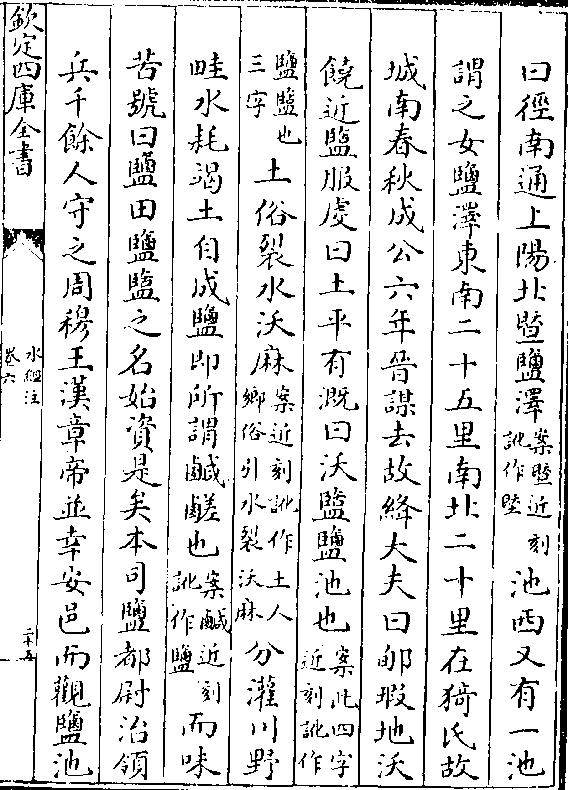 曰徑南通上陽北曁鹽澤案曁近刻訛作塈池西又有一池
謂之女鹽澤東南二十五里南北二十里在猗氏故
城南春秋成公六年晉謀去故絳大夫曰郇瑕地沃
饒近鹽服虔曰土平有溉曰沃盬鹽池也案此四字近刻訛作
鹽鹽也三字土俗裂水沃麻案近刻訛作土人鄉俗引水裂沃麻分灌川野
畦水耗竭土自成鹽即所謂鹹鹺也案鹹近刻訛作鹽而味
苦號曰鹽田鹽盬之名始資是矣本司鹽都尉治領
兵千餘人守之周穆王漢章帝並幸安邑而觀鹽池
欽定四庫全書
水經注
卷六
二十五